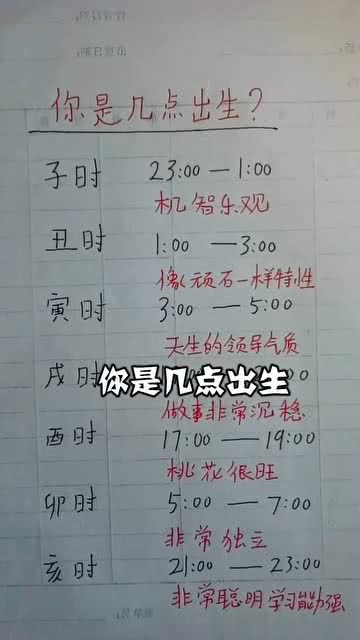 你是几点出生?
子时 23:00 — 1:00
机智乐观
丑时 1:00 — 3:00
像顽石一样特性
寅时 3:00 — 5:00
天生的领导气质
戌时
你是几点出生
做事非常沉稳
酉时 17:00 — 19:00
桃花很旺
卯时 5:00 — 7:00
非常独立
亥时 21:00 — 23:00
非常聪明学习能力强